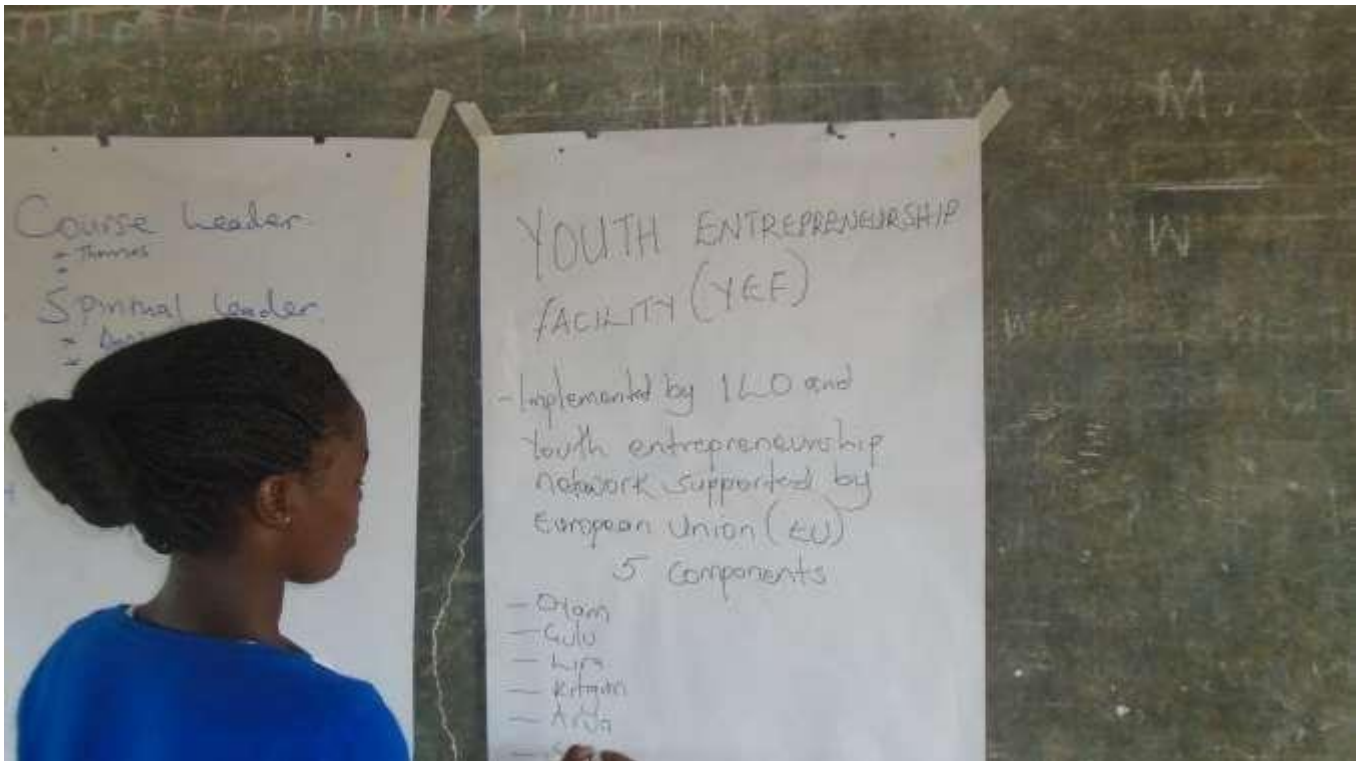 Course Leader
Thomas
Spiritual Leader
YOUTH ENTREPRENEURSHIP
FACILITY (YEF)
- Implemented by ILO and
Youth entrepreneurship
network supported by
European Union (EU)
5 Components
- Oyam
- Gulu
- Lira
- Kitgum
- Arua
M
M
M